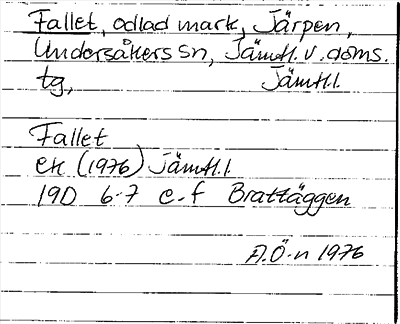 Fallet, odlad mark, Järpen,
Undersåkers sn, Jämtl. v. doms.
tg, Jämtl.l.
Fallet
ek (1976) Jämtl.l
19D 6-7 e-f Brattäggen
A.Ö-n 1976